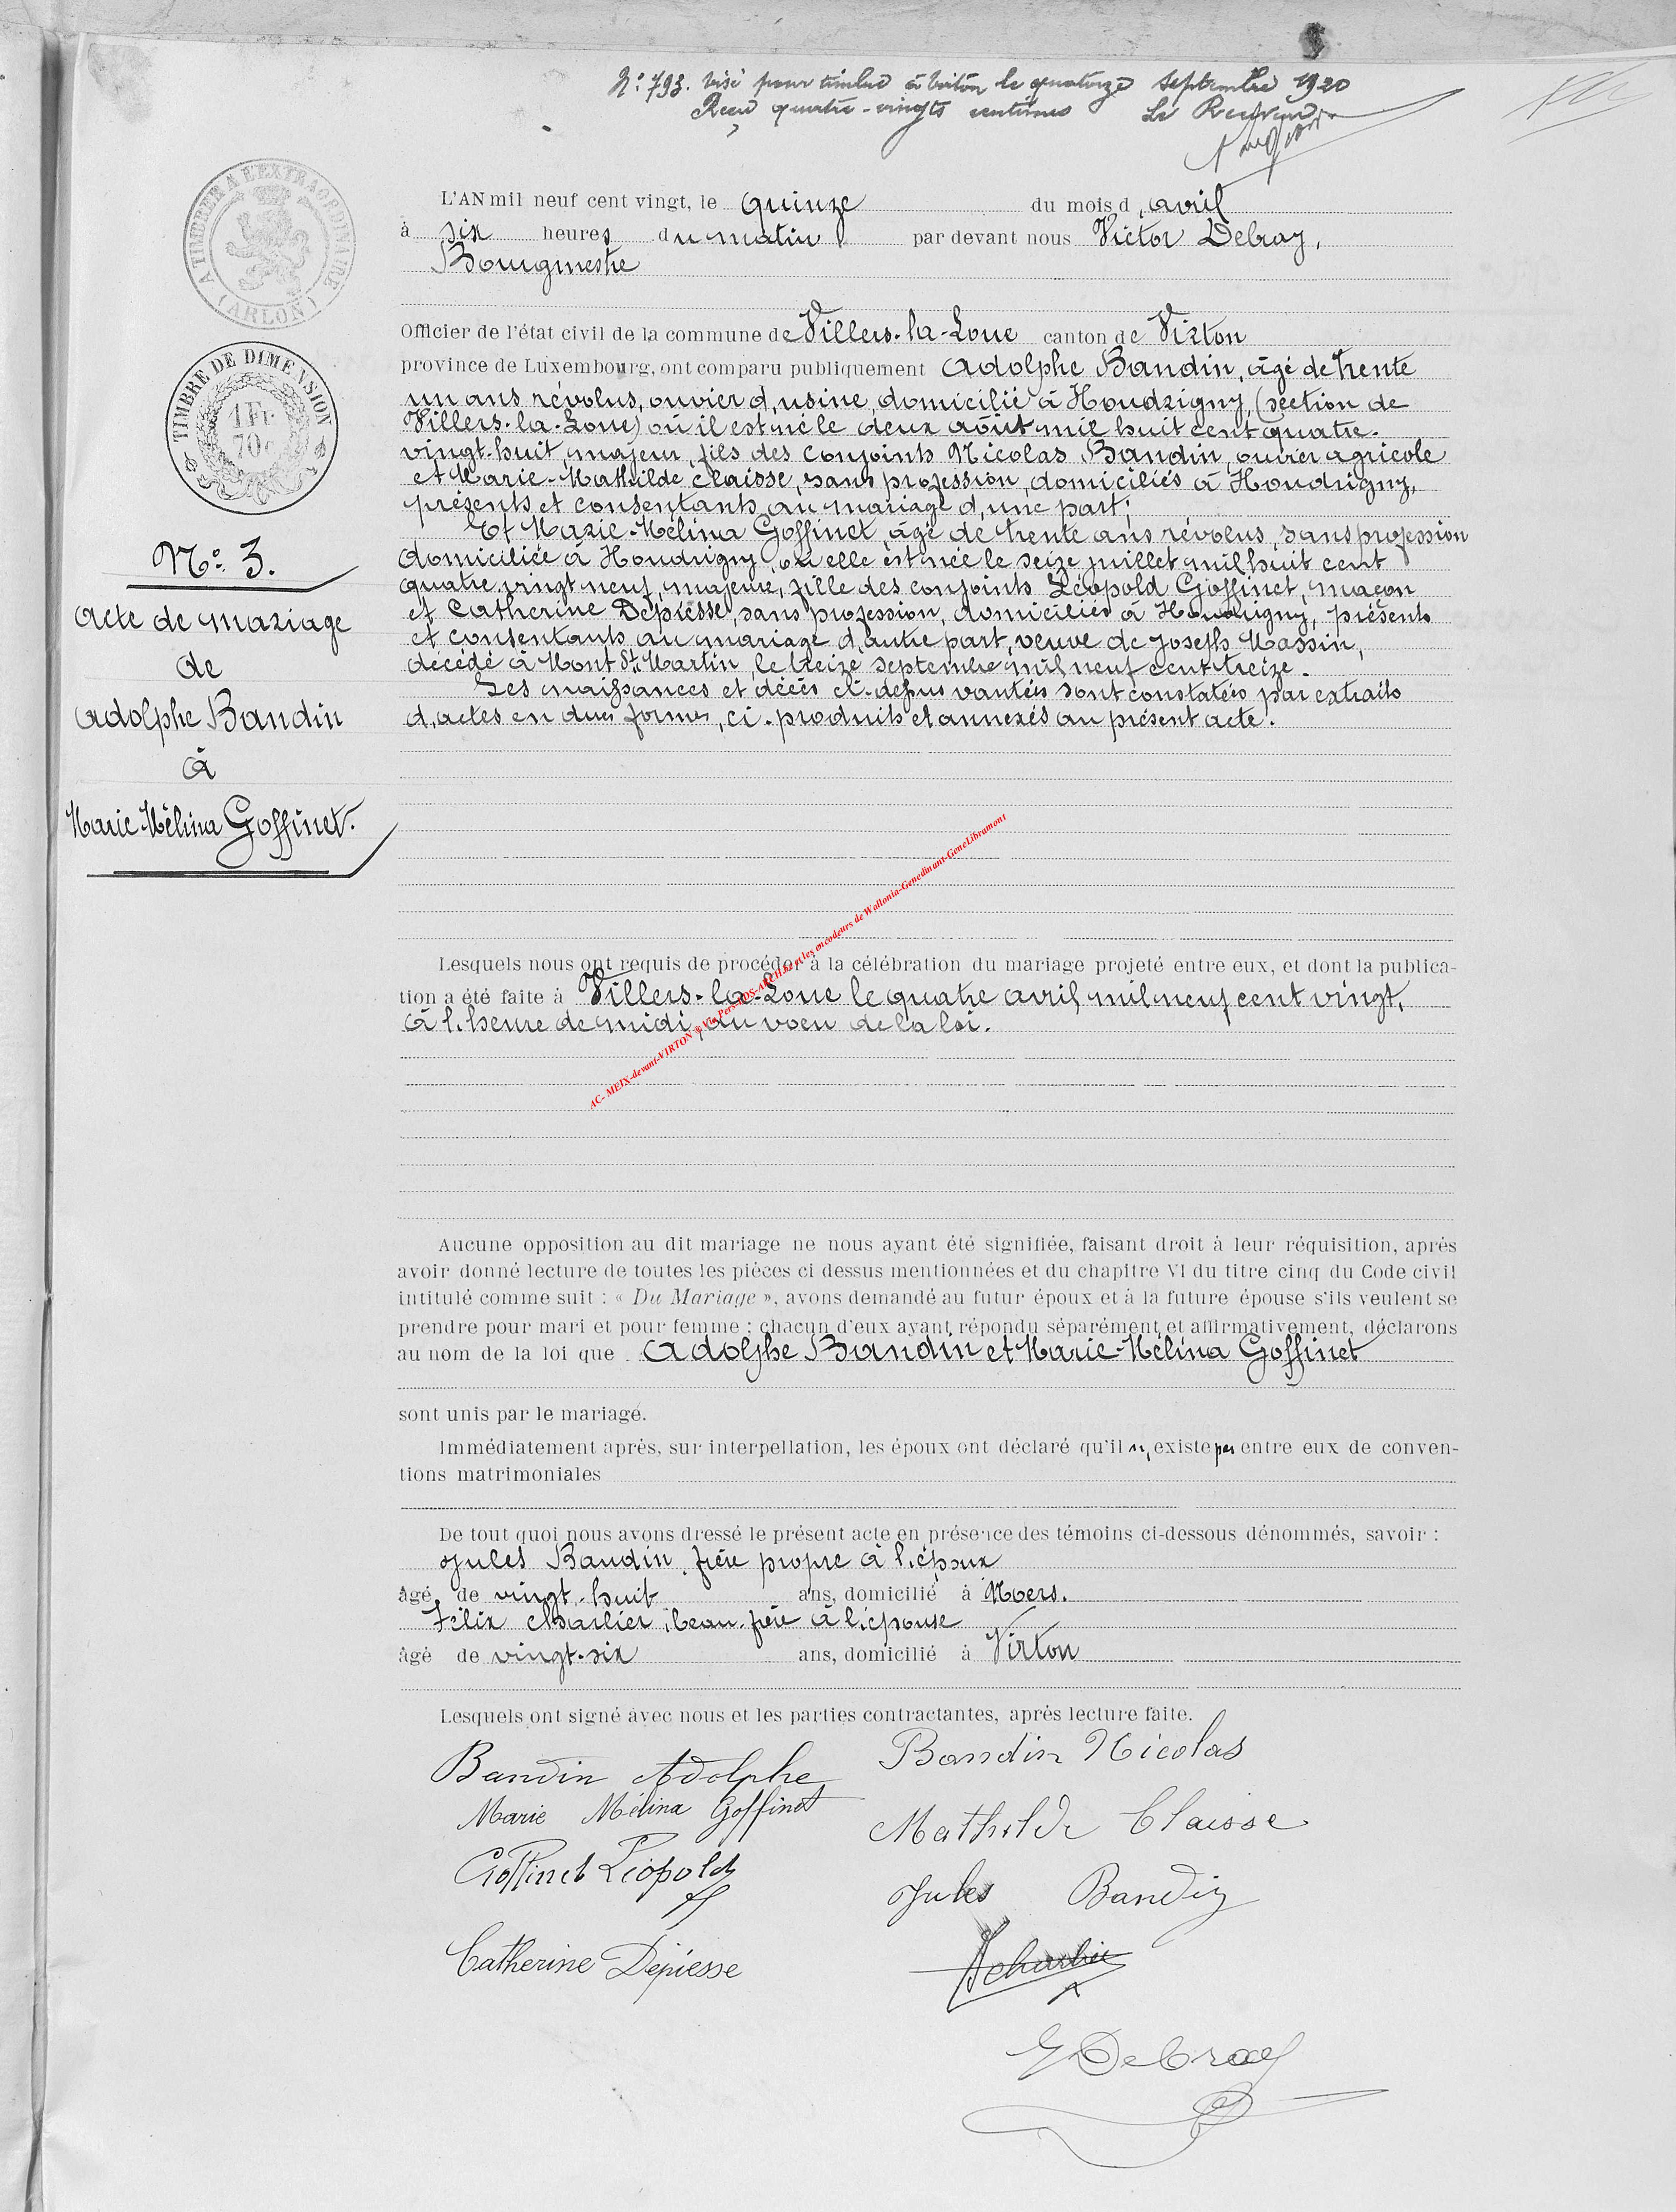 N° 793. Visé pour timbre à Virton le quatorze Septembre 1920
Reçu quatre-vingts centimes Le Receveur
A TIMBRER A L'EXTRAORDINAIRE
(ARLON)
TIMBRE DE DIMENSION
1 Fr.
70c
N° 3.
Acte de mariage
de
Adolphe Baudin
à
Marie-Mélina Goffinet.
L'AN mil neuf cent vingt, le quinze du mois d, avril
à six heures du matin par devant nous Victor Debray,
Bourgmestre
Officier de l'état civil de la commune de Villers-la-Loue canton de Virton
province de Luxembourg, ont comparu publiquement Adolphe Baudin, âgé de trente
un ans révolus, ouvier d'usine, domicilié à Houdrigny, (section de
Villers-la-Loue) où il est né le deux août mil huit cent quatre-
vingt-huit, majeur, fils des conjoints Nicolas Baudin, ouvrier agricole
et Marie-Mathilde Claisse, sans profession, domiciliés à Houdrigny,
présents et consentants au mariage d'une part;
Et Marie-Mélina Goffinet, âgé de trente ans révolus, sans profession
domiciliée à Houdrigny, où elle est née le seize juillet mil huit cent
quatre vingt neuf, majeure, fille des conjoints Léopold Goffinet, maçon
et Catherine Depiesse, sans profession, domiciliés à Houdrigny, présents
et consentants au mariage d'autre part, veuve de Joseph Massin,
décédé à Mont St. Martin, le treize septembre mil neuf cent treize.
Les naissances et décès ci-dessus vantés sont constatés par extraits
d'actes en dues formes, ci-produits et annexés au présent acte.
Lesquels nous ont requis de procéder à la célébration du mariage projeté entre eux, et dont la publica-
tion a été faite à Villers-la-Loue le quatre avril mil neuf cent vingt,
à l'heure de midi, au voeu de la loi.
AC- MEIX-devant-VIRTON
les encodeurs de Wallonia-Genedinant-GeneLibramont
Aucune opposition au dit mariage ne nous ayant été signifiée, faisant droit à leur réquisition, après
avoir donné lecture de toutes les pièces ci dessus mentionnées et du chapitre VI du titre cinq du Code civil
intitulé comme suit : « Du Mariage », avons demandé au futur époux et à la future épouse s'ils veulent se
prendre pour mari et pour femme ; chacun d'eux ayant répondu séparément et affirmativement, déclarons
au nom de la loi que Adolphe Baudin et Marie-Mélina Goffinet
sont unis par le mariage.
Immédiatement après, sur interpellation, les époux ont déclaré qu'il n'existe pas entre eux de conven-
tions matrimoniales
De tout quoi nous avons dressé le présent acte en présence des témoins ci-dessous dénommés, savoir :
Jules Baudin, frère propre à l'époux
âgé de vingt-huit ans, domicilié à Moers.
Félix Charlier, beau-frère à l'épouse
âgé de vingt-six ans, domicilié à Virton
Lesquels ont signé avec nous et les parties contractantes, après lecture faite.
Baudin Adolphe Baudin Nicolas
Marie Mélina Goffinet Mathilde Claisse
Goffinet Léopold Jules Baudin
Catherine Depiesse Charlier
V Debray